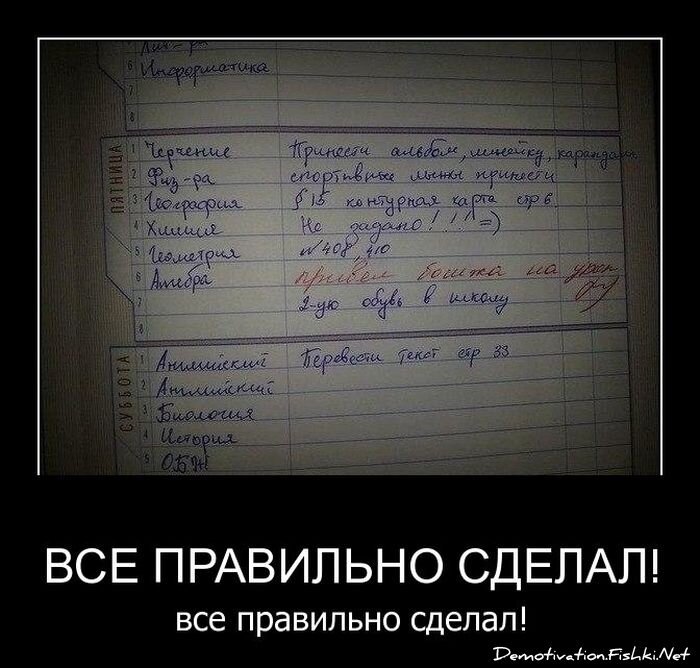 Лит-ра
6 Информатика
7
8
ПЯТНИЦА
1 Черчение Принести альбом, линейку, карандаш
2 Физ-ра спортивные лыжи принести
3 География § 15 контурная карта стр 6
4 Химия Не задано! !!! =)
5 Геометрия № 408, 410
6 Алгебра привел бомжа на урок
7 2-ую обувь в школу
8
СУББОТА
1 Английский Перевести текст стр 33
2 Английский
3 Биология
4 История
5 ОБЖ
ВСЕ ПРАВИЛЬНО СДЕЛАЛ!
все правильно сделал!
Demotivation.FishkiNet